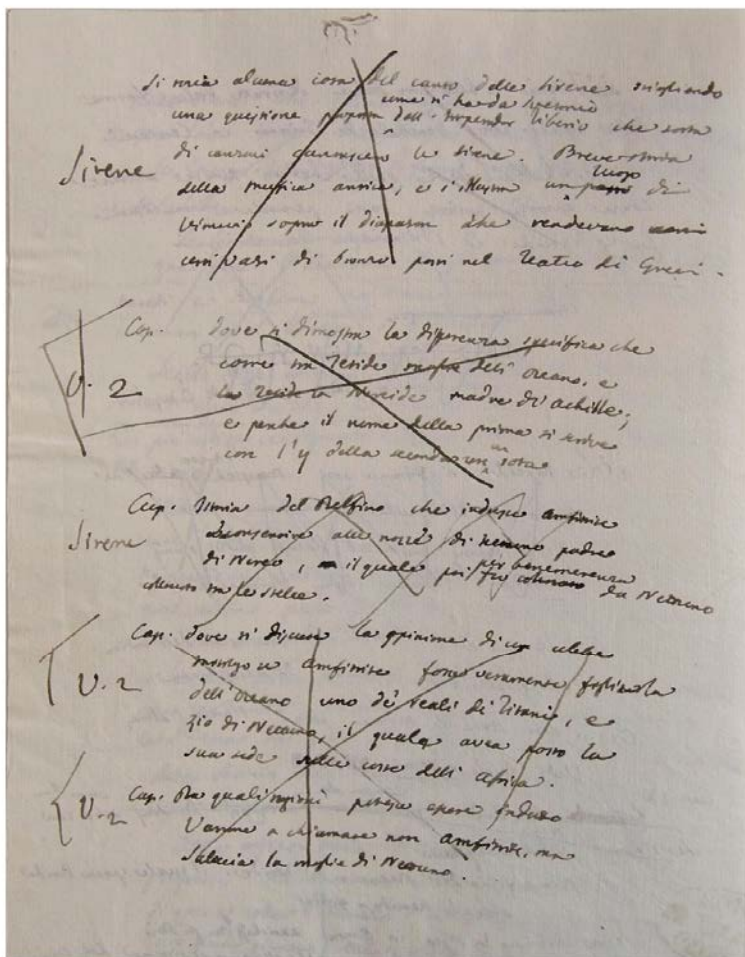 Si narra alcuna cosa del canto delle Sirene sciogliendo
come si ha da Svetonio
una quistione proposta dall'Imperador Tiberio che sorta
di canzoni cantassero le Sirene. Breve storia
Sirene
luogo
della musica antica, e s'illustra un passo di
Vitruvio sopra il diapason che rendevano
certi vasi di bronzo posti nel Teatro di Greci.
Cap. dove si dimostra la differenza specifica che
V. 2
corre tra Teside moglie dell'Oceano, e
la Teside Nereide madre di Achille;
e perche il nome della prima si scrive
con l'y della seconda con un iota
Cap. Istoria del Delfino che indusse Amfitrite
Sirene
a consentire alle nozze di Nettuno padre
di Nereo, il quale poi fu per benemerenza da Nettuno
collocato tra le stelle.
Cap. dove si discute la opinione di un celebre
V. 2
se Amfitrite fosse veramente figliuola
dell'Oceano uno de' reali di Titania, e
zio di Nettuno, il quale avea posto la
sua sede sulle coste dell'Africa.
V. 2
Cap. Da quali ragioni potesse essere indutto
Varrone a chiamare non Amfitrite, ma
Salacia la moglie di Nettuno.